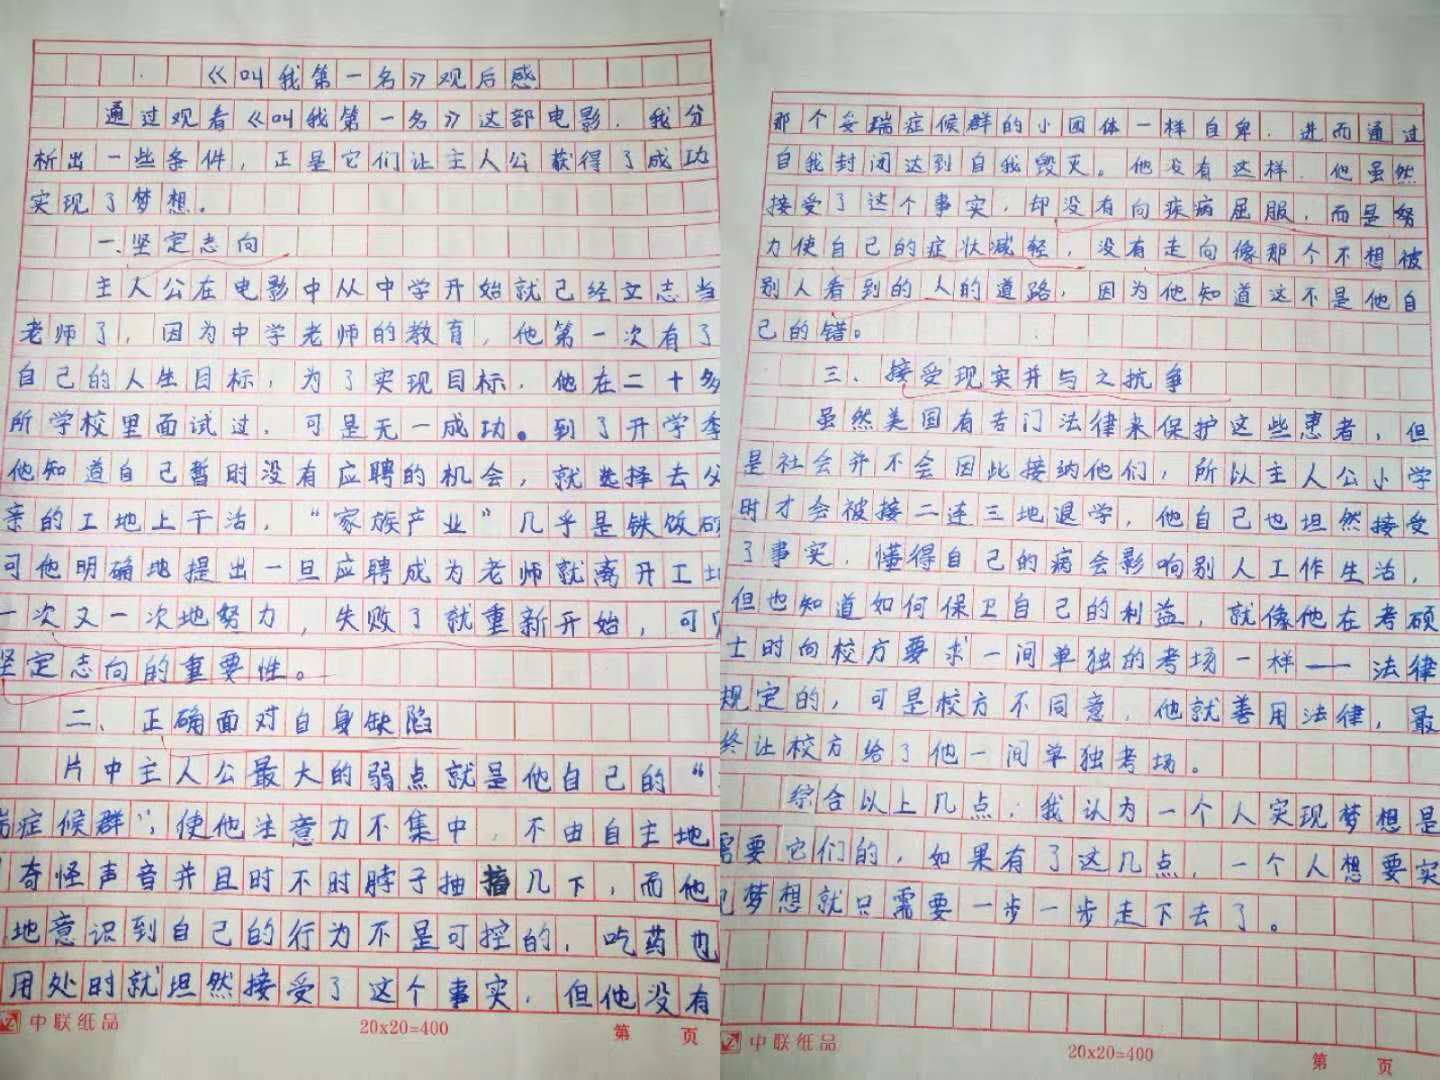 《叫我第一名》观后感
通过观看《叫我第一名》这部电影，我分
析出一些条件，正是它们让主人公获得了成功
实现了梦想。
一、坚定志向
主人公在电影中从中学开始就已经立志当
老师了，因为中学老师的教育，他第一次有了
自己的人生目标，为了实现目标，他在二十多
所学校里面试过，可是无一成功。到了开学季
他知道自己暂时没有应聘的机会，就选择去父
亲的工地上干活，“家族产业”几乎是铁饭碗
可他明确地提出一旦应聘成为老师就离开工地
一次又一次地努力，失败了就重新开始，可见
坚定志向的重要性。
二、正确面对自身缺陷
片中主人公最大的弱点就是他自己的“
瑞症候群”，使他注意力不集中，不由自主地
奇怪声音并且时不时脖子抽搐几下，而他
地意识到自己的行为不是可控的，吃药也
用处时就坦然接受了这个事实，但他没有
中联纸品
20x20=400
第 页
那个妥瑞症候群的小团体一样自卑，进而通过
自我封闭达到自我毁灭。他没有这样，他虽然
接受了这个事实，却没有向疾病屈服，而是努
力使自己的症状减轻，没有走向像那个不想被
别人看到的人的道路，因为他知道这不是他自
己的错。
三、接受现实并与之抗争
虽然美国有专门法律来保护这些患者，但
是社会并不会因此接纳他们，所以主人公小学
时才会被接二连三地退学，他自己也坦然接受
了事实，懂得自己的病会影响别人工作生活，
但也知道如何保卫自己的利益，就像他在考硕
士时向校方要求一间单独的考场一样——法律
规定的，可是校方不同意，他就善用法律，最
终让校方给了他一间单独考场。
综合以上几点，我认为一个人实现梦想是
需要它们的，如果有了这几点，一个人想要实
现梦想就只需要一步一步走下去了。
中联纸品
20x20=400
第 页